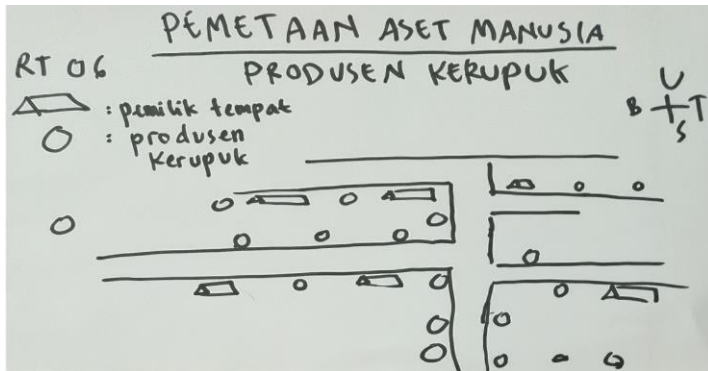 PEMETAAN ASET MANUSIA
PRODUSEN KERUPUK
RT 06
: pemilik tempat
: produsen
kerupuk
U
B T
S